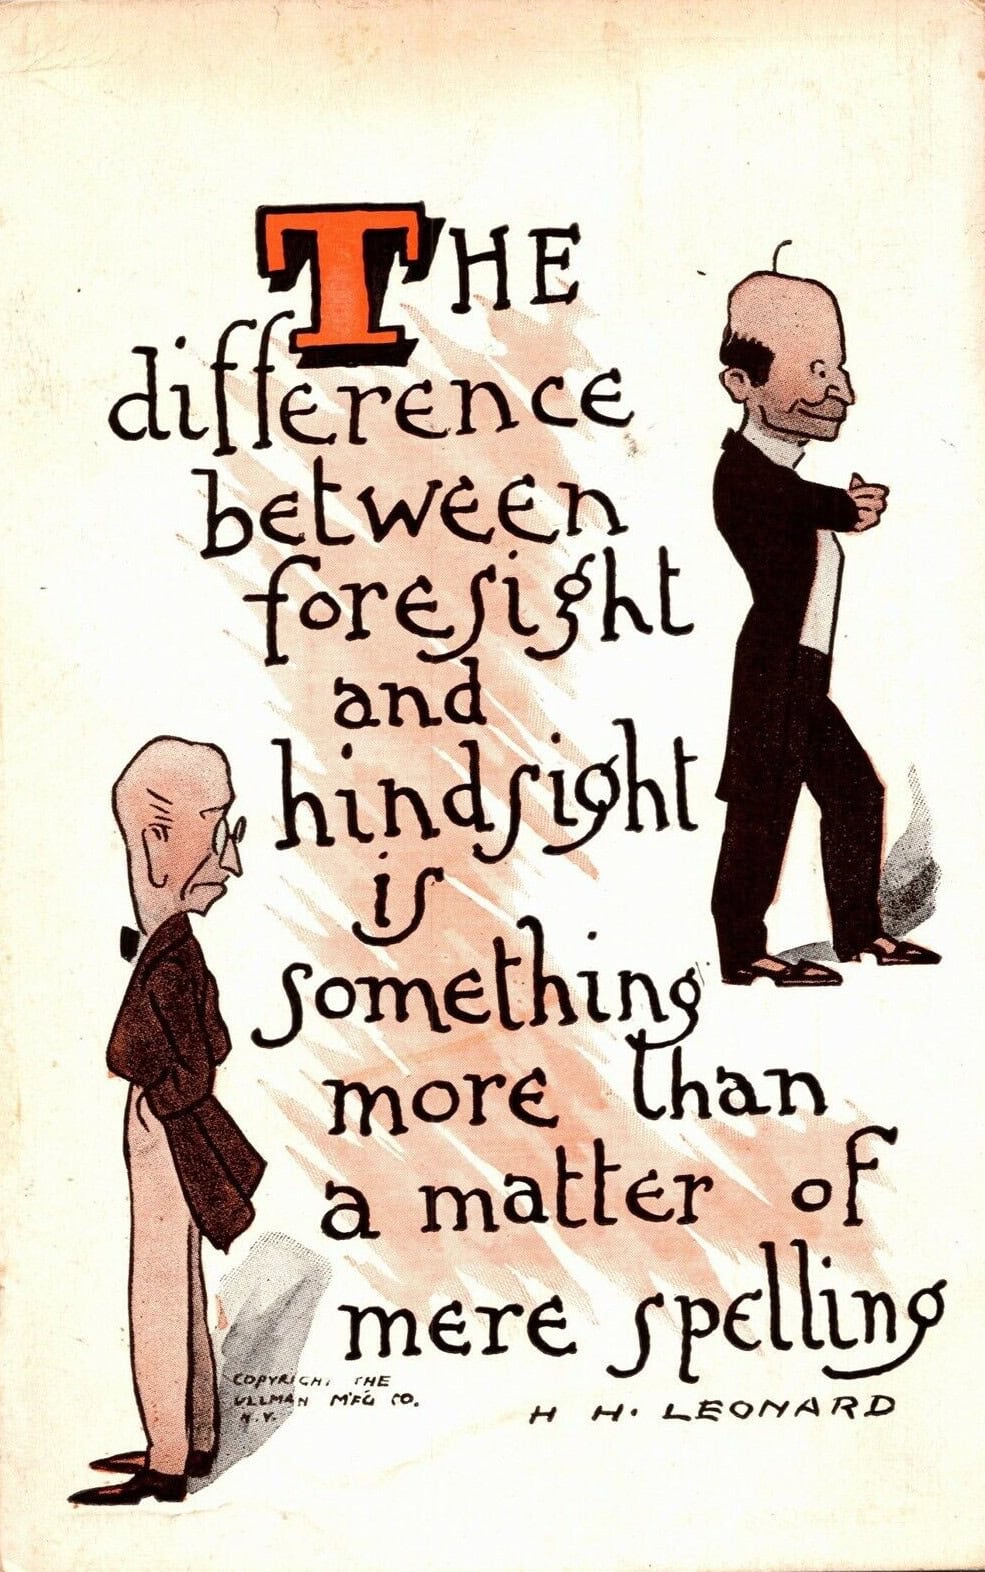 THE
difference
between
foresight
and
hindsight
is
something
more than
a matter of
mere spelling
COPYRIGH. THE
ULLMAN M'F'G CO.
N.Y.
H H. LEONARD